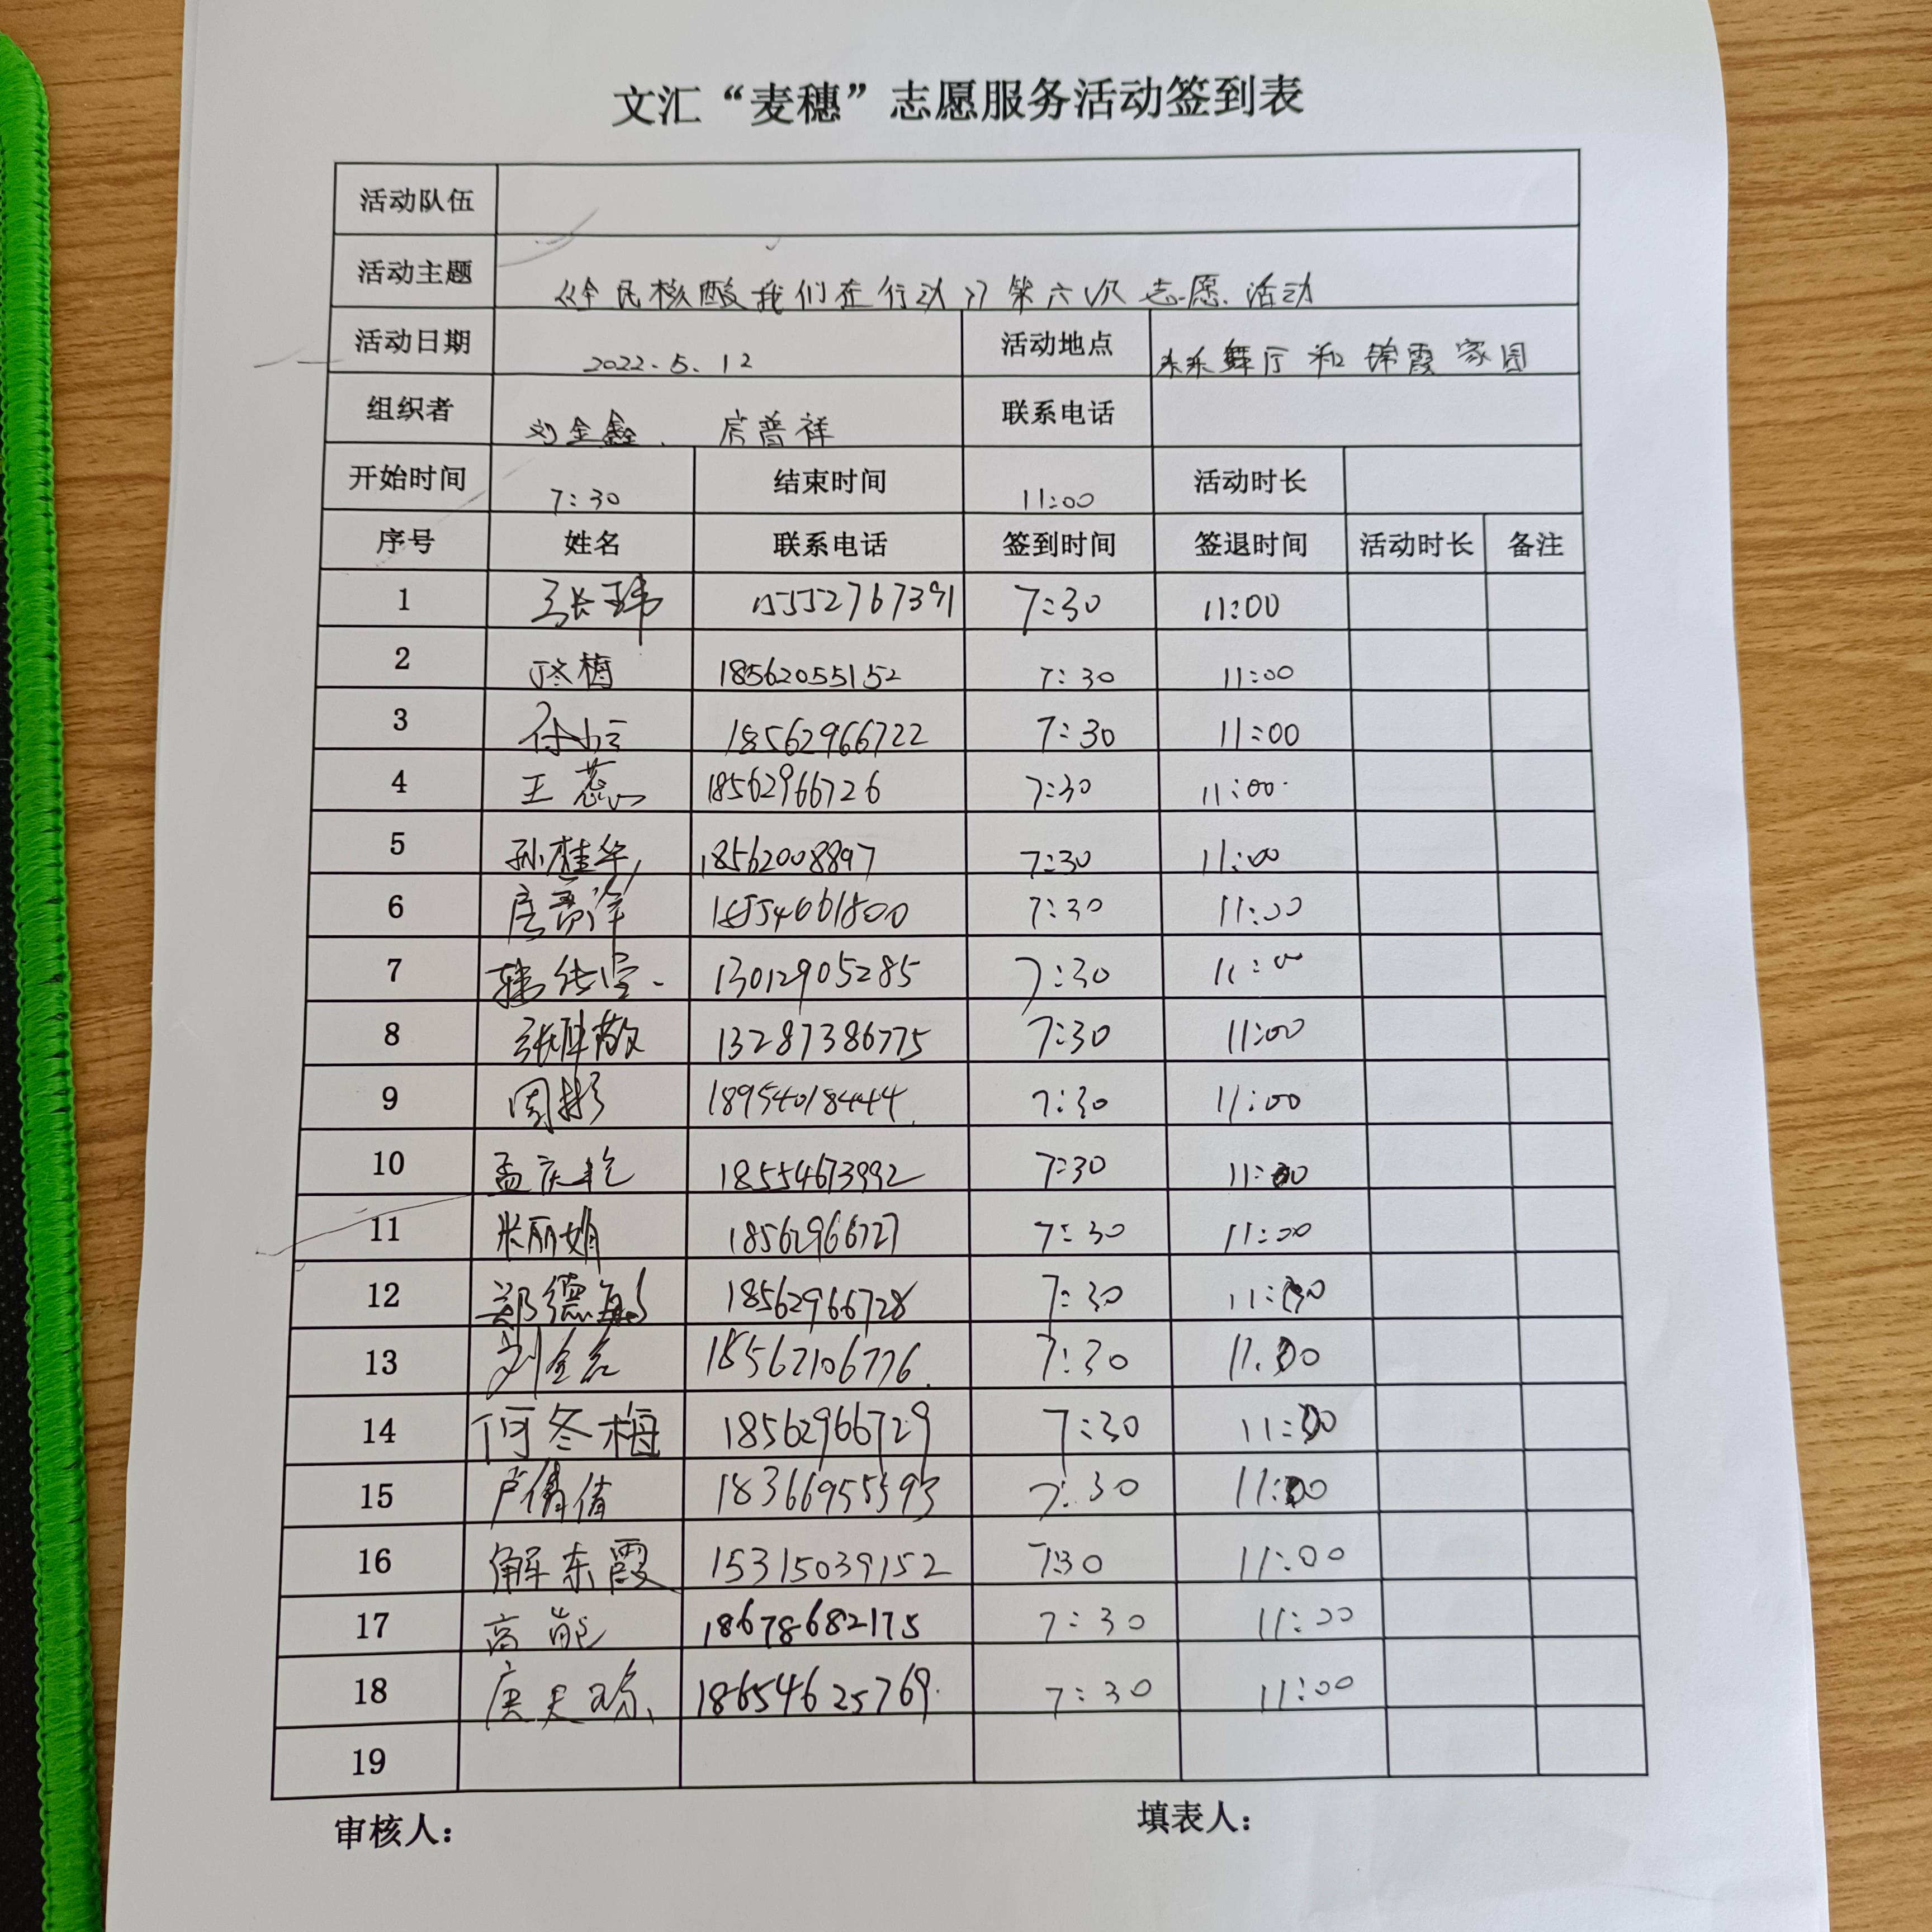 文汇“麦穗”志愿服务活动签到表
活动队伍
活动主题 《全民核酸我们在行动》第六次志愿活动
活动日期 2022.5.12 活动地点 东东舞厅和锦霞家园
组织者 刘金鑫、房普祥 联系电话
开始时间 7:30 结束时间 11:00 活动时长
序号 姓名 联系电话 签到时间 签退时间 活动时长 备注
1 15552767391 7:30 11:00
2 丁冬梅 18562055152 7:30 11:00
3 18562966722 7:30 11:00
4 王蕊 18562966726 7:30 11:00
5 孙桂华 18562008897 7:30 11:00
6 房普祥 18554661800 7:30 11:00
7 13012905285 7:30 11:00
8 13287386775 7:30 11:00
9 周彬 18954018444 7:30 11:00
10 孟庆艳 18554673992 7:30 11:00
11 米丽娟 18562966727 7:30 11:00
12 郑德敏 18562966728 7:30 11:00
13 18562106776 7:30 11:00
14 何冬梅 18562966729 7:30 11:00
15 卢倩倩 18366955593 7:30 11:00
16 解东霞 15315039152 7:30 11:00
17 高能 18678682175 7:30 11:00
18 18654625769 7:30 11:00
19
审核人： 填表人：